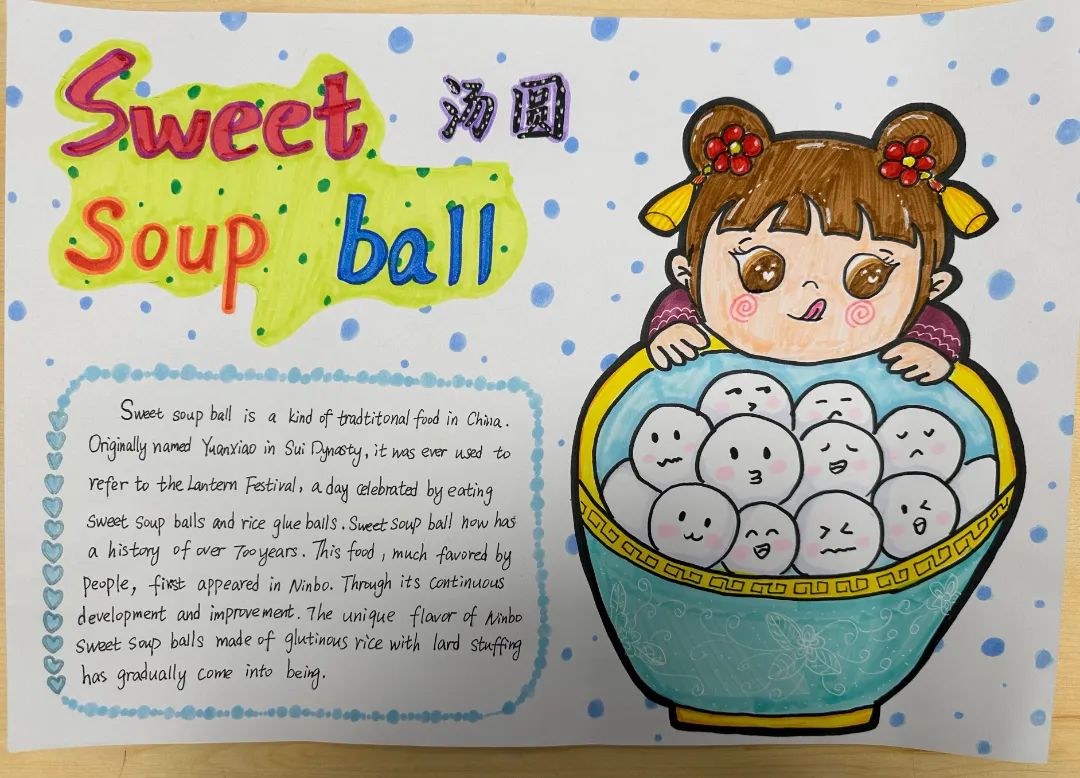 Sweet
汤圆
Soup ball
Sweet soup ball is a kind of tradtitonal food in China.
Originally named Yuanxiao in Sui Dynasty, it was ever used to
refer to the Lantern Festival, a day celebrated by eating
sweet soup balls and rice glue balls. Sweet soup ball now has
a history of over 700 years. This food, much favored by
people, first appeared in Ninbo. Through its continuous
development and improvement. The unique flavor of Ninbo
sweet soup balls made of glutinous rice with lard stuffing
has gradually come into being.